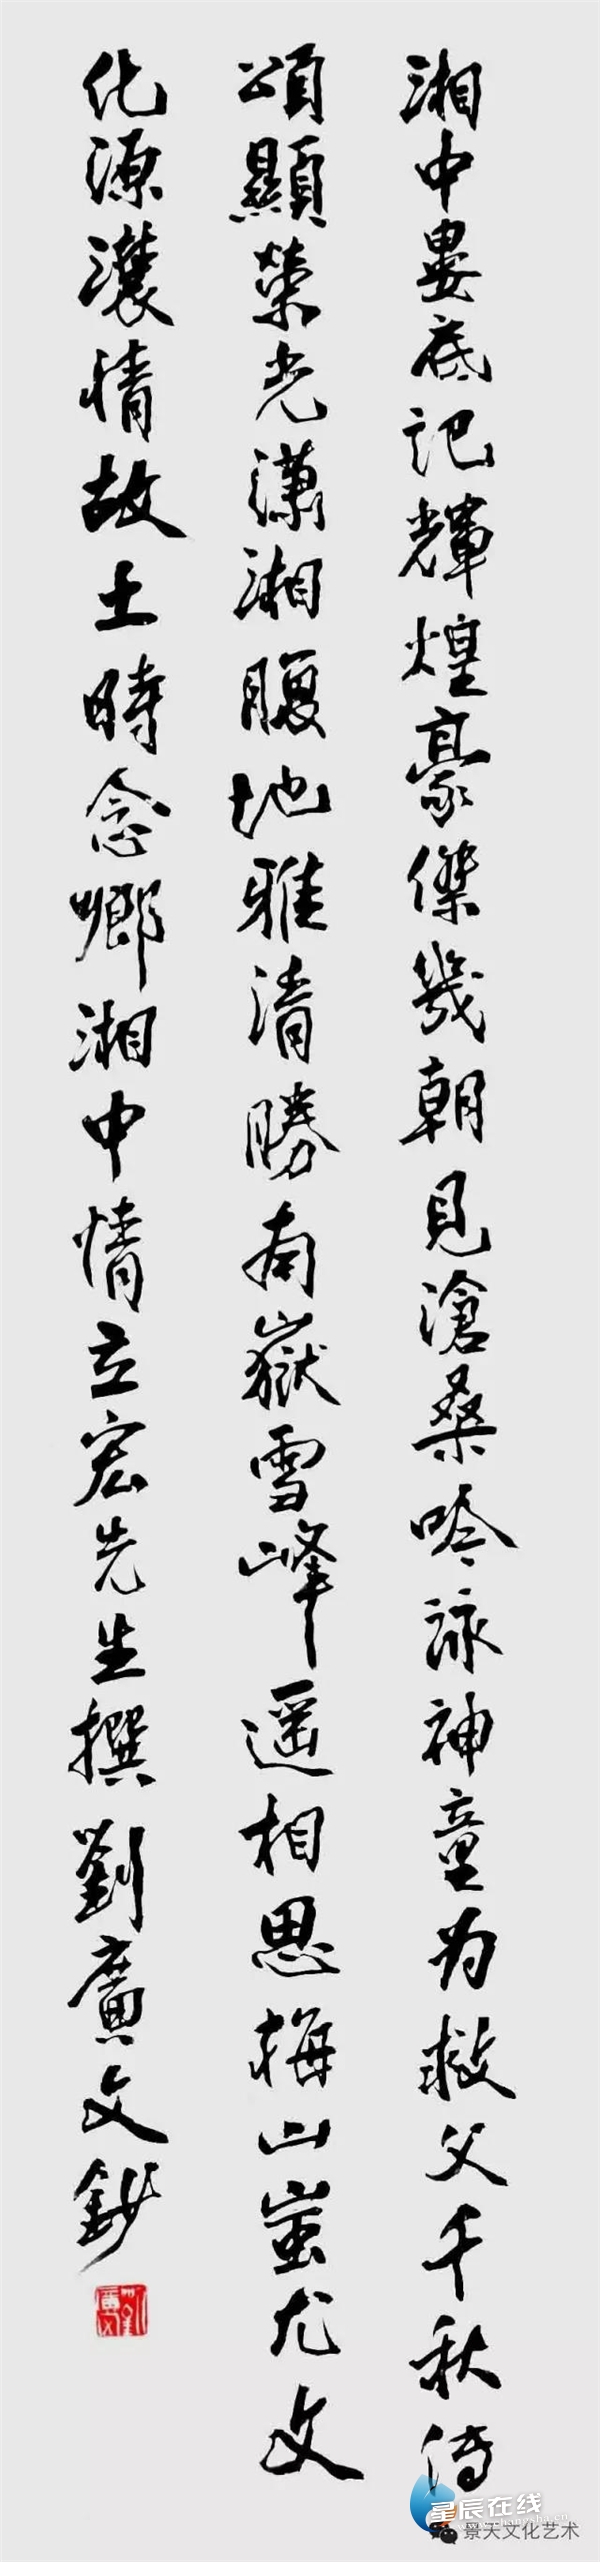 湘中婁底記輝煌豪傑幾朝見滄桑吟詠神童为救父千秋傳
頌顯榮光瀟湘腹地雅清勝南嶽雪峰遥相思梅山蚩尤文
化源濃情故土時念鄉湘中情立宏先生撰劉廣文鈔
星辰在线
景天文化艺术